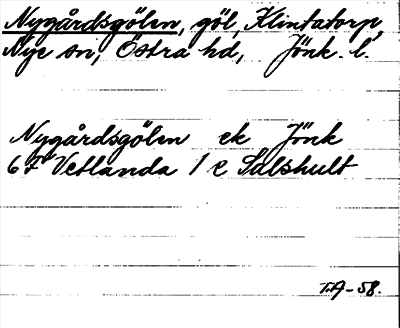 Nygårdsgölen, göl, Klintatorp,
Nye sn, Östra hd, Jönk. l.
Nygårdsgölen ek Jönk
6F Vetlanda 1 e Sälshult
T.A-58.